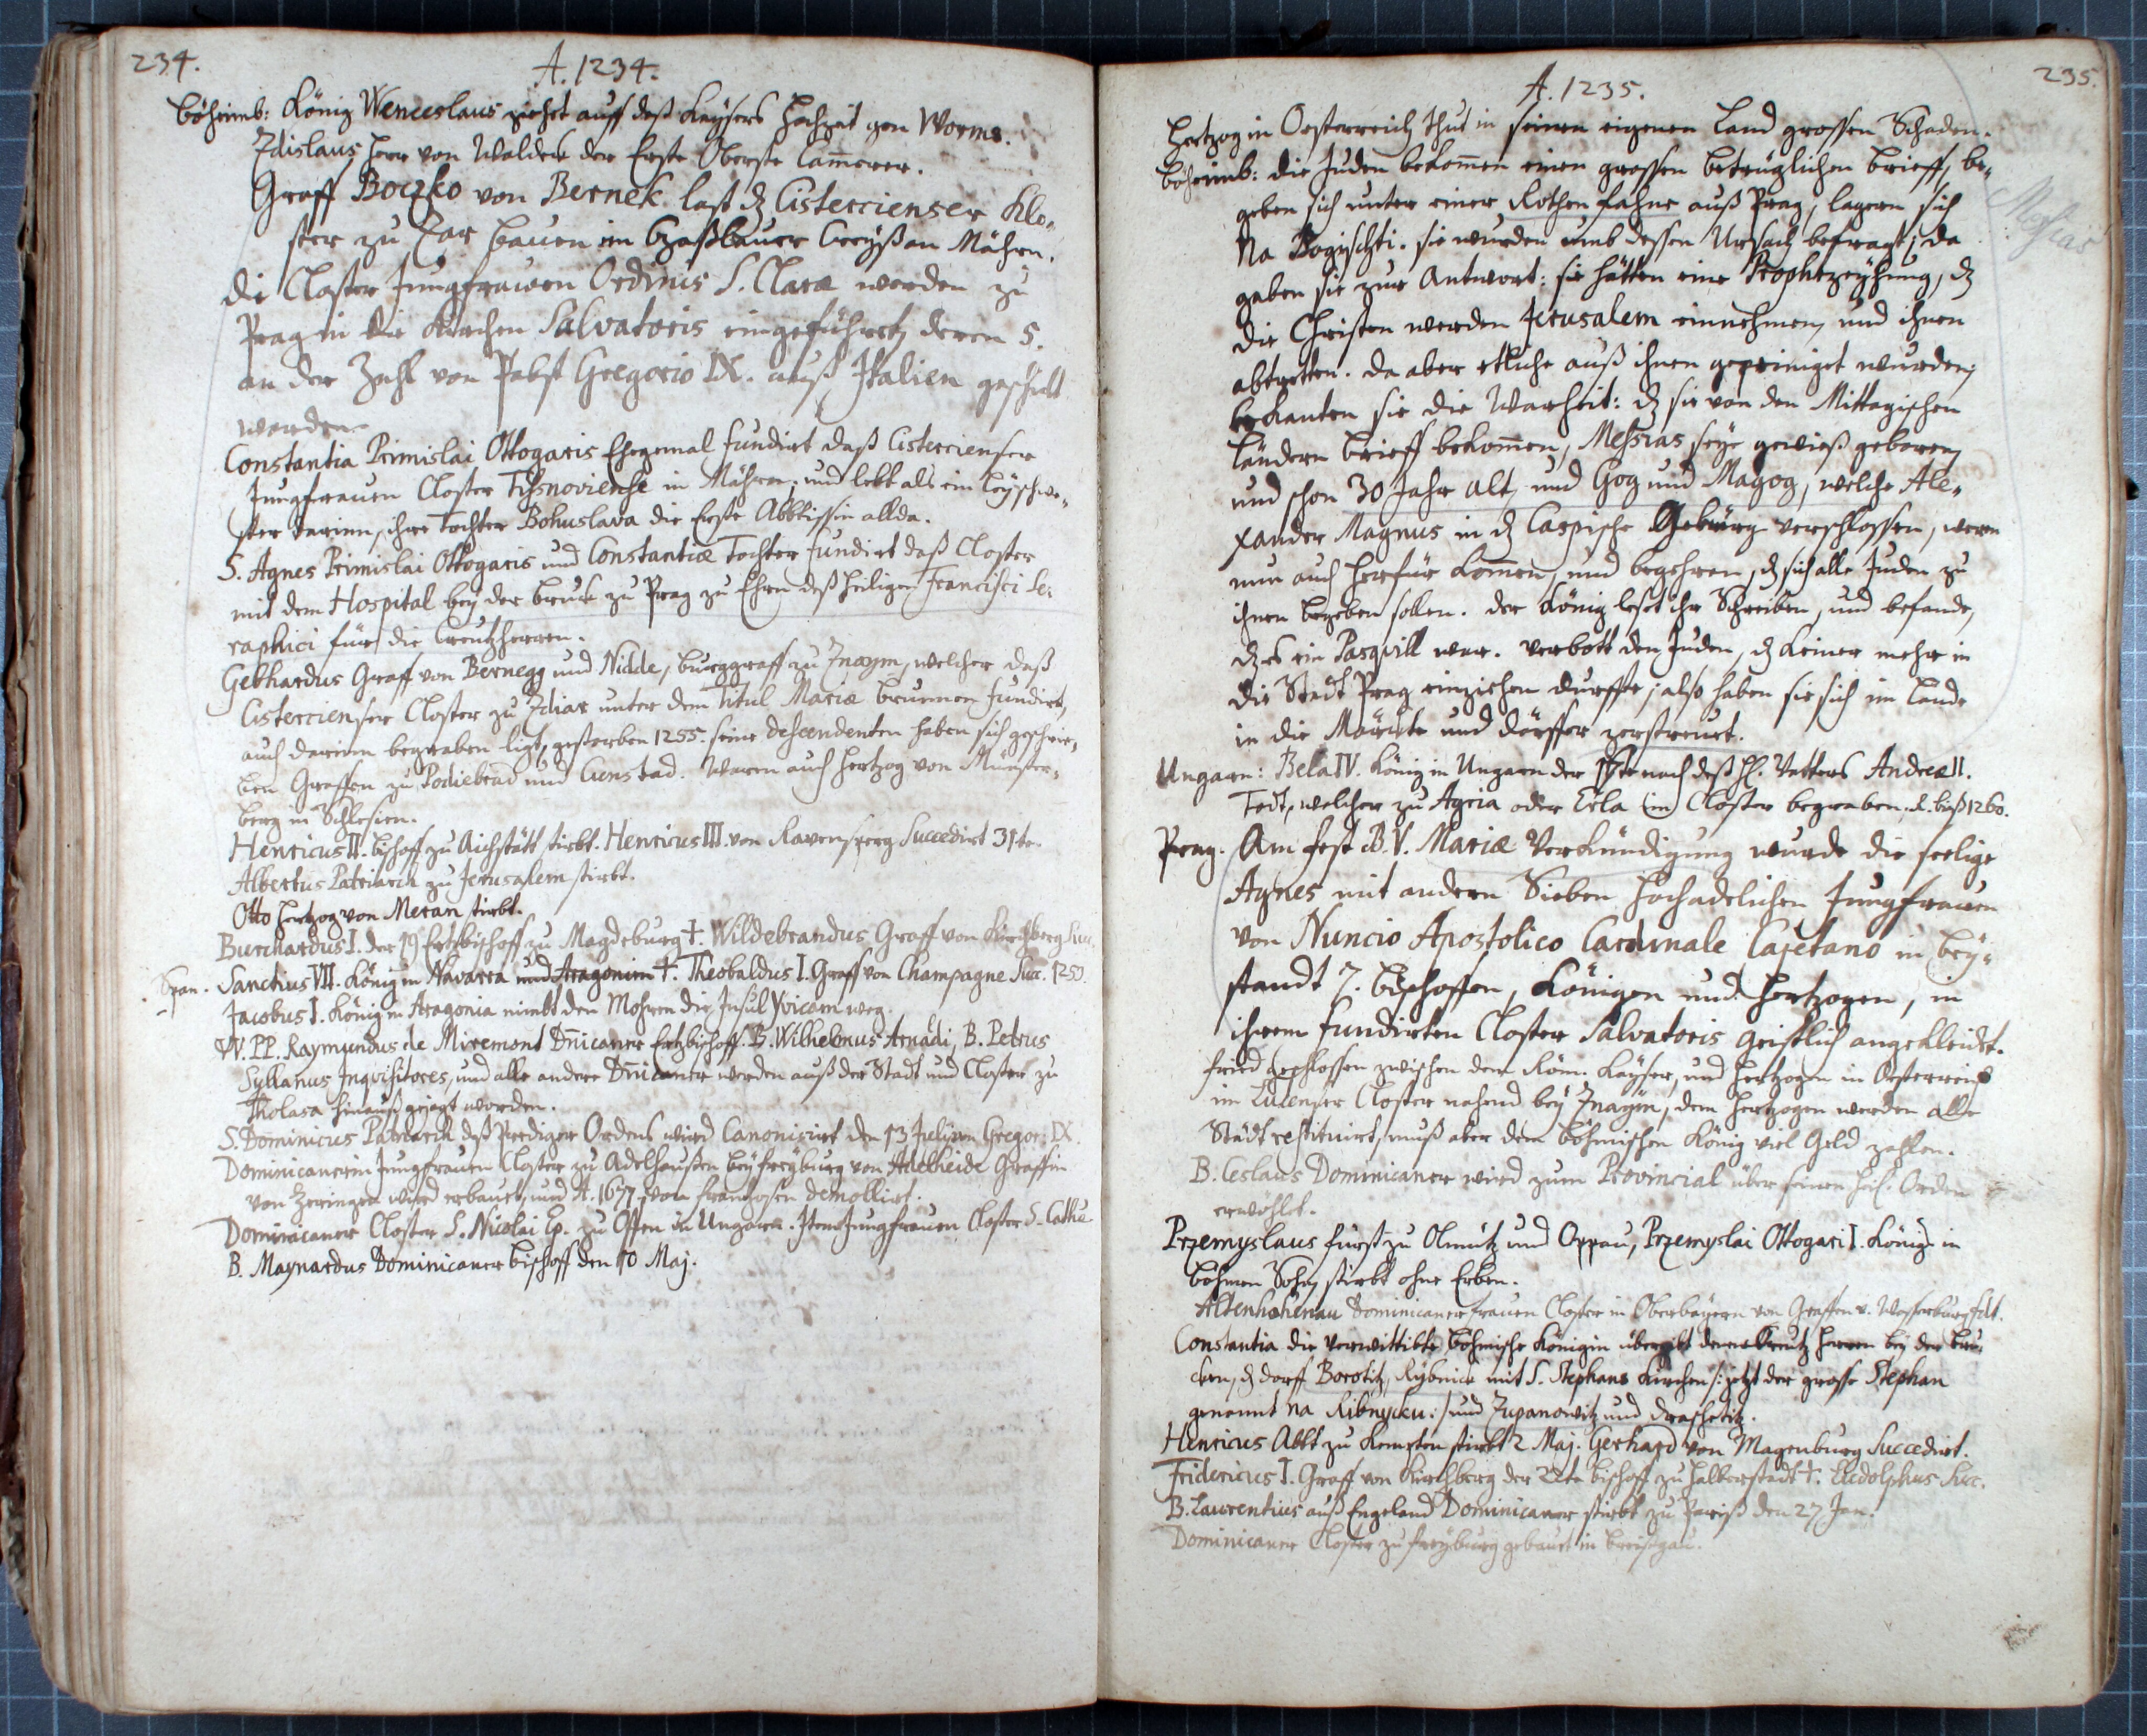 234.
A. 1234.
Böheimb: König Wenceslaus ziehet auff deß Kaysers Hochzeit gen Worms.
Zdislaus Herr von Waldek der Erste Oberste Cammerer.
Graff Boczko von Bernek last dz Cistercienser Klo-
ster zu Zar bauen im Czaßlauer Creyß an Mähren.
Die Closter Jungfrawen Ordinis S. Claræ werden zu
Prag in die Kirchen Salvatoris eingeführet, deren 5.
an der Zahl von Pabst Gregorio IX. auß Italien geschikt
worden.
Constantia Primislai Ottogaris Ehegemal fundirt daß Cistercienser
Jungfrauen Closter Tißnoviense in Mähren, und lebt als ein Leyschwe-
ster darinn, ihre Tochter Bohuslava die Erste Abbtissin allda.
S. Agnes Primislai Ottogaris und Constantiæ Tochter fundirt daß Closter
mit dem Hospital bey der Bruk zu Prag zu Ehren deß Heiligen Francisci Se-
raphici für die Creutzherren.
Gebhardus Graff von Bernegg und Nidde, Burggraff zu Znaym, welcher daß
Cistercienser Closter zu Zdiar unter dem Titul Mariæ brunnen fundirt,
auch darinn begraben ligt, gestorben 1255. seine Descendenten haben sich geschrie-
ben Graffen zu Podiebrad und Cunstad. Waren auch Hertzog von Münster-
berg in Schlesien.
Henricus II. Bischoff zu Aichstätt stirbt. Henricus III. von Ravensperg Succedirt 31te.
Albertus Patriarch zu Jerusalem stirbt.
Otto Hertzog von Meran stirbt.
Burchardus I. der 19 Ertzbischoff zu Magdeburg †. Wildebrandus Graff von Kirchberg Suc.
Span. Sanctius VII. König in Navarra und Aragonien †. Theobaldus I. Graff von Champagne Suc. 1253.
Jacobus I. König in Aragonia nimbt den Mohren die Insul Yvicam weg.
VV. PP. Raymundus de Miremont Dnicaner Ertzbischoff. B. Wilhelmus Arnadi, B. Petrus
Syllanus Inquisitores, und alle andere Dnicaner werden auß der Stadt und Closter zu
Tholasa hinauß gejagt worden.
S. Dominicus Patriarch deß Prediger Ordens wird Canonisirt den 13 Julij von Gregor. IX.
Dominicanerin Jungfrauen Closter zu Adelhaußen bey Freyburg von Adelheide Graffin
von Zeringen wird erbauet, und A. 1677 von Frantzosen demollirt.
Dominicaner Closter S. Nicolai Ep. zu Offen in Ungarn. Item Jungfrauen Closter S. Cathe.
B. Maynardus Dominicaner Bischoff den 10 Maj.
235.
A. 1235.
Hertzog in Oesterreich thut in seinen eigenen Land grossen Schaden.
Böheimb: Die Juden bekommen einen grossen betrüglichen brieff, be-
geben sich unter einer Rothen Fahne auß Prag, lagern sich
Messias
Na Bogischti. sie wurden umb dessen Ursach befragt; da
gaben sie zur Antwort: sie hätten eine Prophezeyhung, dz
die Christen werden Jerusalem einnehmen, und ihnen
abtretten. da aber etliche auß ihnen gepeiniget wurden,
bekanten sie die Warheit: dz sie von den Mittagischen
Ländern brieff bekommen, Messias seye gewiß geboren,
und schon 30 Jahr alt, und Gog und Magog, welche Ale-
xander Magnus in dz Caspische Gebürg verschlossen, weren
nun auch herfür kommen, und begehren, dz sich alle Juden zu
ihnen begeben sollen. Der König leset ihr Schreiben, und befande,
dz es ein Pasqvill war. verbott den Juden, dz keiner mehr in
die Stadt Prag einziehen durffte; also haben sie sich im Lande
in die Märckte und dörffer zerstreuet.
Ungarn: Bela IV. König in Ungarn der 17te nach deß H. Vatters Andreæ II.
Todt, welcher zu Agria oder Erla (im) Closter begraben. R. biß 1260.
Prag. Am fest B. V. Mariæ Verkündigung wurde die seelige
Agnes mit andern Sieben Hochadelichen Jungfrauen
von Nuncio Apostolico Cardinale Cajetano in bey-
standt 7. Bischoffen, Königen und Hertzogen, in
ihrem fundirten Closter Salvatoris geistlich angekleidet.
Fried geschlossen zwischen dem Röm. Kayser, und Hertzogen in Oesterreich
im Lucenser Closter nahend bey Znaym, dem Hertzogen werden alle
Städt restituirt, muß aber dem Böhmischen König viel Geld zahlen.
B. Ceslaus Dominicaner wird zum Provincial über seinen Heil. Orden
erwöhlet.
Przemyslaus Fürst zu Olmütz und Oppau, Przemyslai Ottogari I. König in
Böhmen Sohn, stirbt ohne Erben.
Altenhohenau Dominicaner frauen Closter in Oberbayern von Graffen v. Wasserburg fdt.
Constantia die verwittibte Böhmische Königin übergibt denen Kreutz Herren bey der bru-
cken, dz dorff Borotitz, Rybnick mit S. Stephans Kirchen /: jetzt der grosse Stephan
genannt na Ribnyczku :/ und Zupanowitz und Draschetitz.
Henricus Abbt zu Kempten stirbt 2 Maj. Gerhard von Magenburg Succedirt.
Fridericus I. Graff von Kirchberg der 22te Bischoff zu Halberstadt †. Ludolphus Suc.
B. Laurentius auß Engeland Dominicaner stirbt zu Pariß den 27 Jan.
Dominicaner Closter zu Freyburg gebauet in Breißgau.